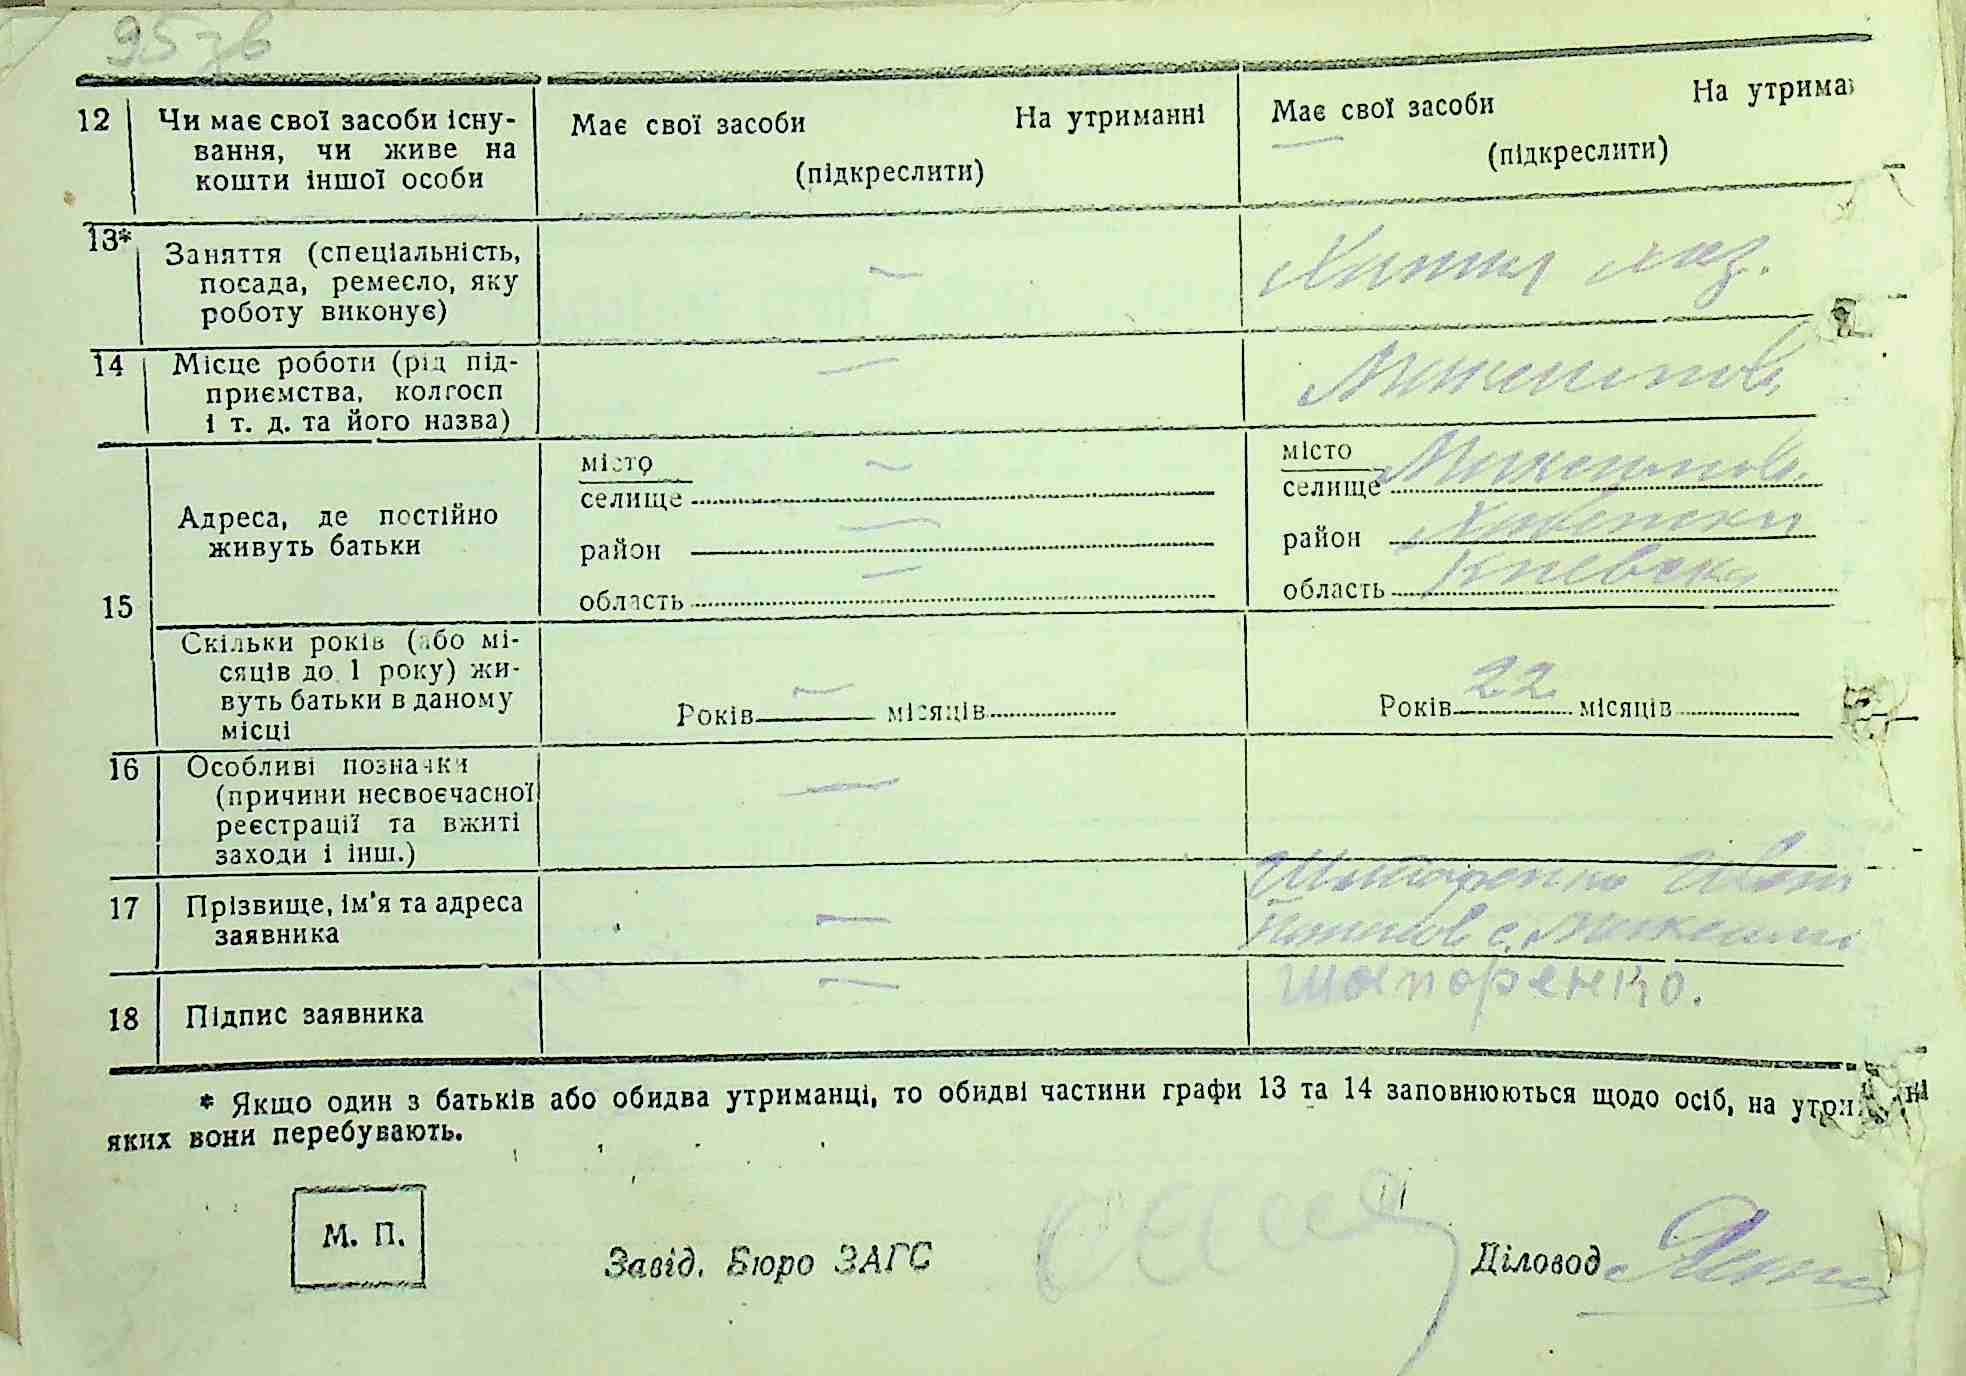 95 зв
12 Чи має свої засоби існу-
вання, чи живе на
кошти іншої особи
Має свої засоби На утриманні
(підкреслити)
Має свої засоби На утрима
(підкреслити)
13* Заняття (спеціальність,
посада, ремесло, яку
роботу виконує)
—
14 Місце роботи (рід під-
приємства, колгосп
і т. д. та його назва)
—
15
Адреса, де постійно
живуть батьки
місто —
селище
район —
область —
місто
селище
район
область Киевска
Скільки років (або мі-
сяців до 1 року) жи-
вуть батьки в даному
місці
Років — місяців
Років 22 місяців
16 Особливі позначки
(причини несвоєчасної
реєстрації та вжиті
заходи і інш.)
—
17 Прізвище, ім'я та адреса
заявника
—
Шапоренко Иван
18 Підпис заявника
—
шапоренко.
* Якщо один з батьків або обидва утриманці, то обидві частини графи 13 та 14 заповнюються щодо осіб, на
яких вони перебувають.
М. П.
Завід. Бюро ЗАГС
Діловод